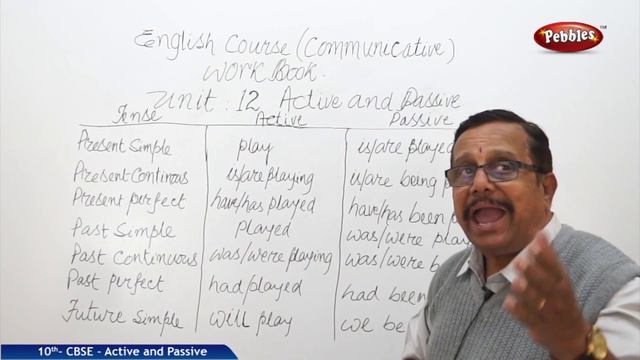 English Course (Communicative)
Pebbles™
Work Book.
Unit : 12 Active and Passive
Tense Active Passive
Present Simple play is/are played
Present Continous is/are playing is/are being p
Present perfect have/has played have/has been p
Past Simple played was/were play
Past Continuous was/were playing was/were b
Past perfect had/played had been
Future Simple will play we be
10th- CBSE - Active and Passive